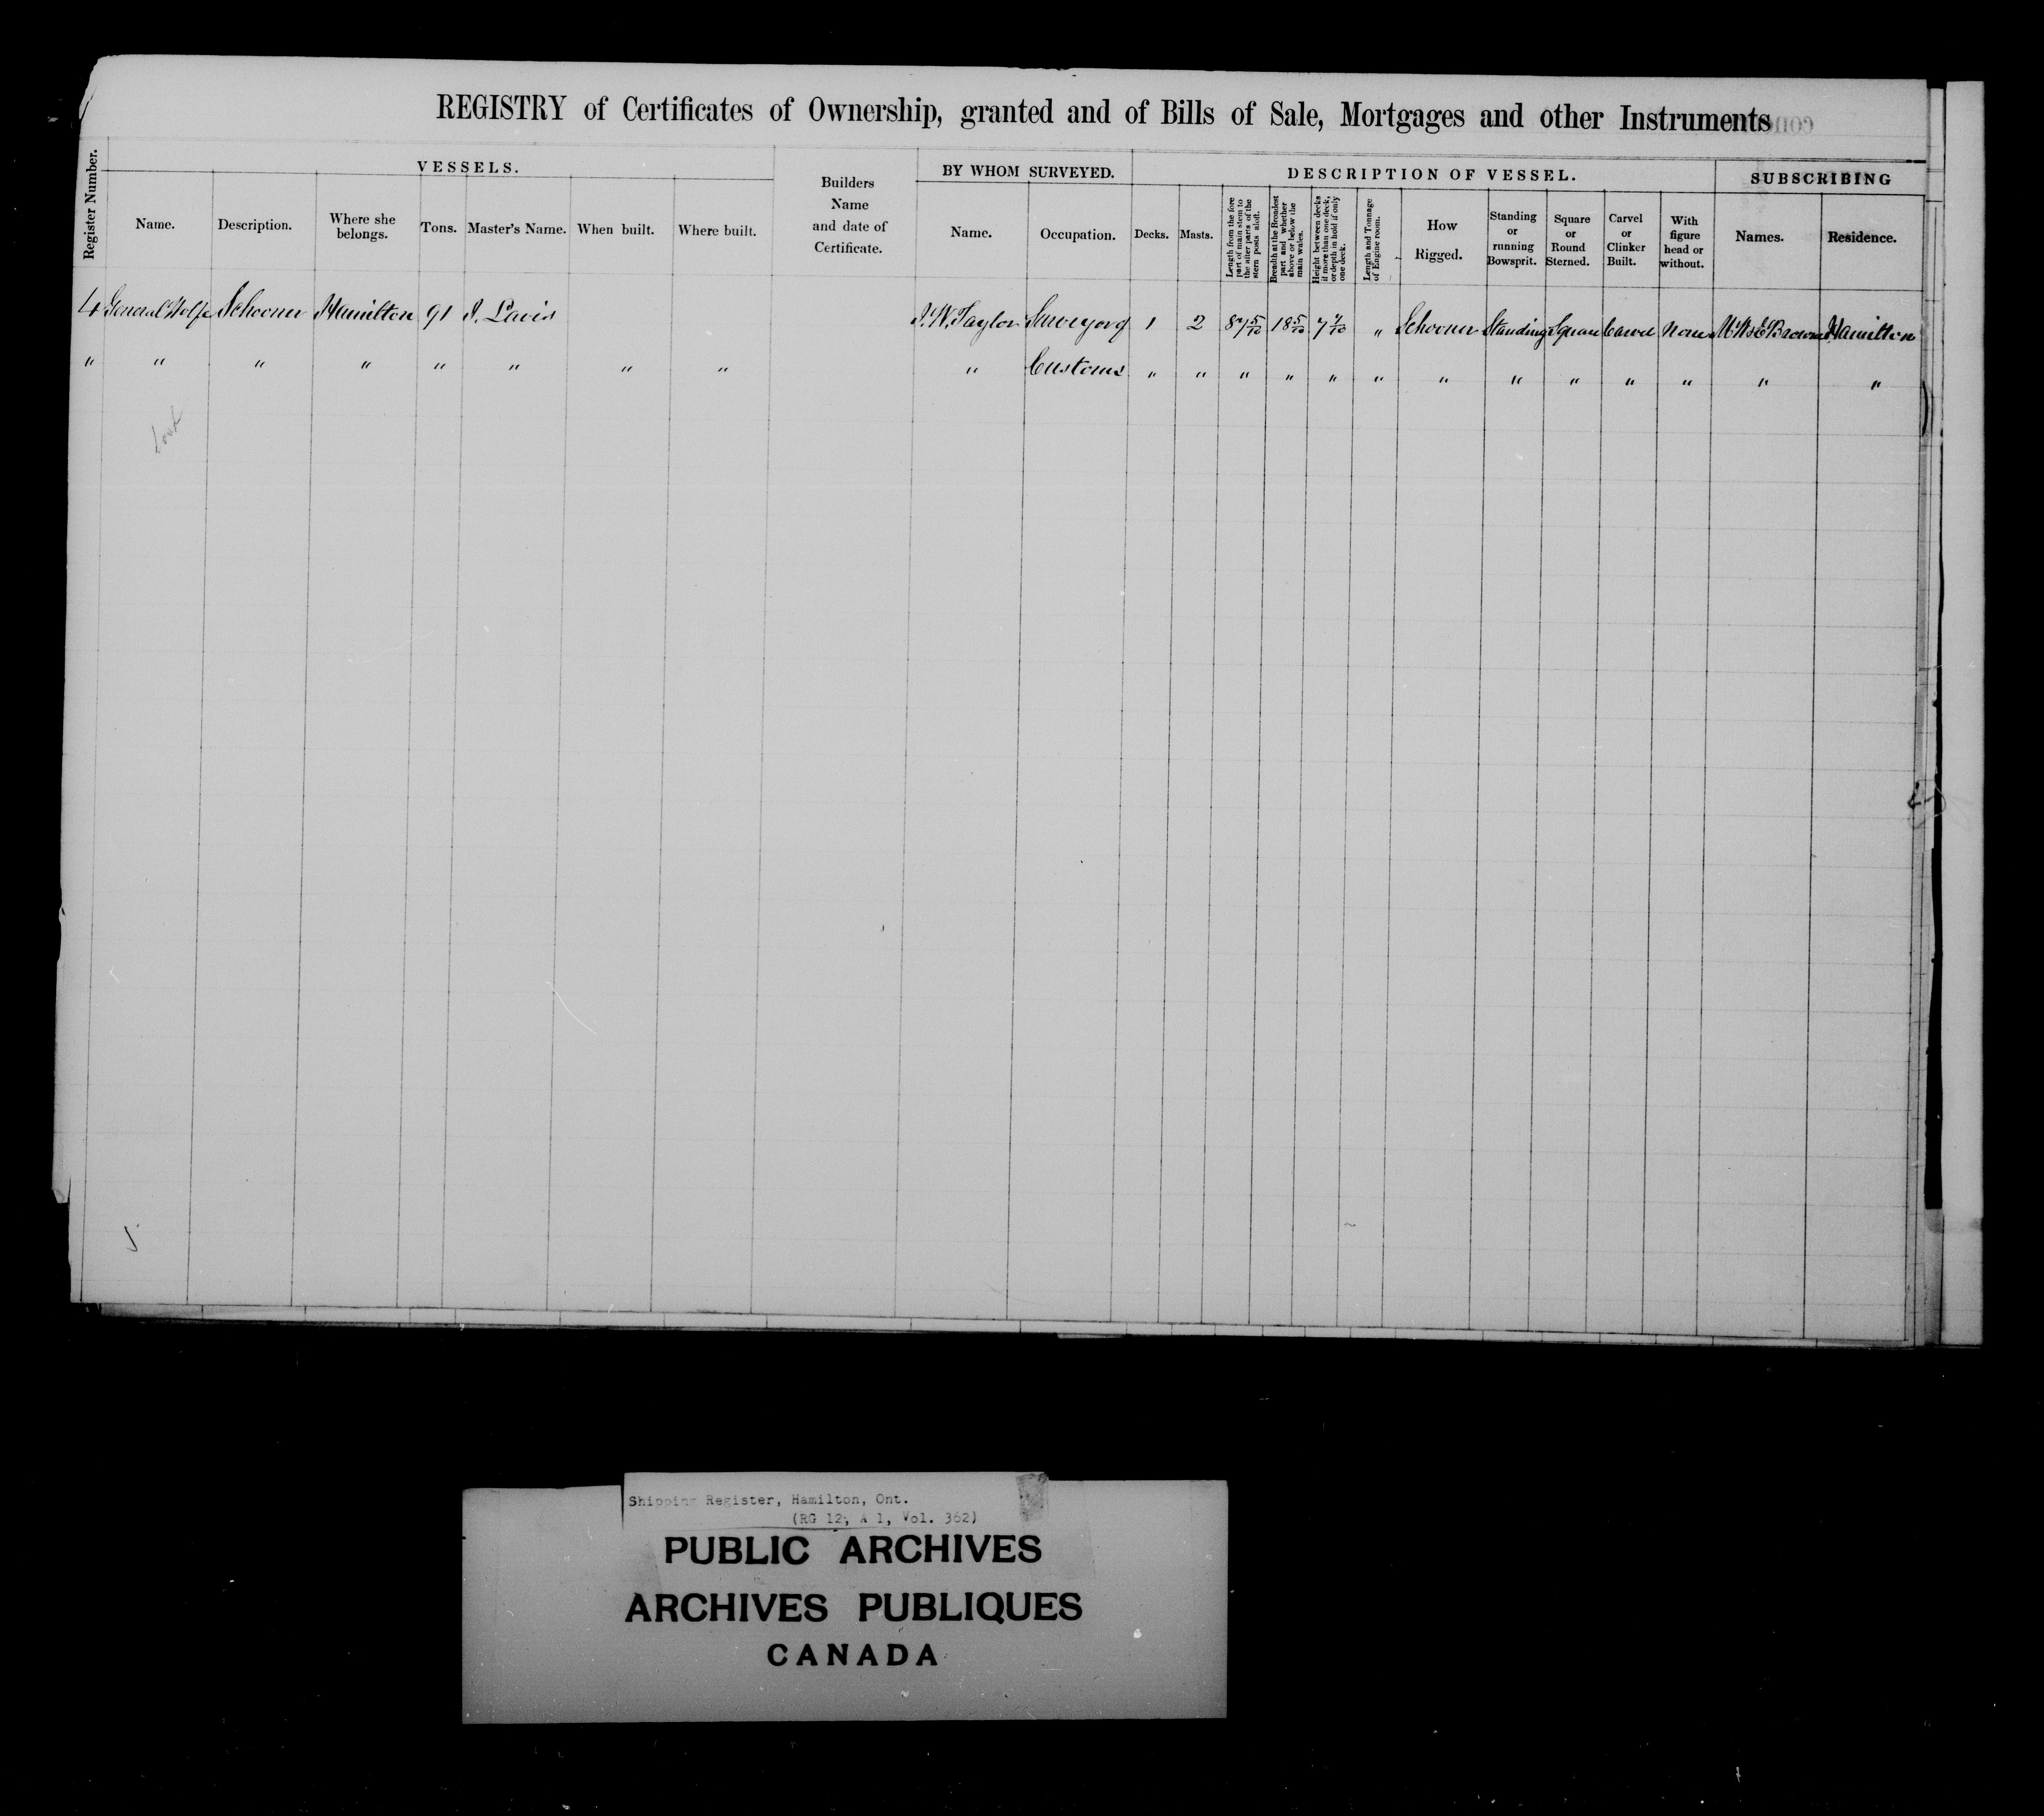 REGISTRY of Certificates of Ownership, granted and of Bills of Sale, Mortgages and other Instruments
Register Number.
VESSELS.
Name.
Description.
Where she
belongs.
Tons.
Master's Name.
When built.
Where built.
Builders
Name
and date of
Certificate.
BY WHOM SURVEYED.
Name.
Occupation.
DESCRIPTION OF VESSEL.
Decks.
Masts.
Length from the fore
part of main stem to
the after parts of the
stern posts aloft.
Breadth at the Broadest
part and whether
above or below the
main wales.
Height between decks
if more than one deck,
or depth in hold if only
one deck.
Length and Tonnage
of Engine room.
How
Rigged.
Standing
or
running
Bowsprit.
Square
or
Round
Sterned.
Carvel
or
Clinker
Built.
With
figure
head or
without.
SUBSCRIBING
Names.
Residence.
4 General Wolfe Schooner Hamilton 91 J. Davis J. W. Taylor Surveyor of 1 2 87 5/10 18 5/10 7 7/10 " Schooner Standing Square Carvel None M W & E Browne Hamilton
" " " " " " " " " Customs " " " " " " " " " " " " "
Shipping Register, Hamilton, Ont.
(RG 12, A 1, Vol. 362)
PUBLIC ARCHIVES
ARCHIVES PUBLIQUES
CANADA